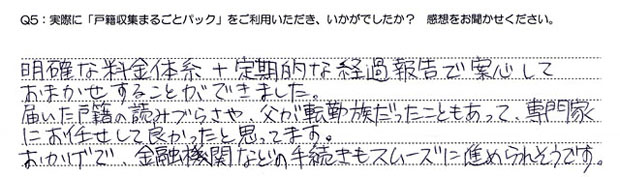 Q5：実際に「戸籍収集まるごとパック」をご利用いただき、いかがでしたか？ 感想をお聞かせください。
明確な料金体系＋定期的な経過報告で安心して
おまかせすることができました。
届いた戸籍の読みづらさや、父が転勤族だったこともあって、専門家
にお任せして良かったと思ってます。
おかげで、金融機関などの手続きもスムーズに進められそうです。